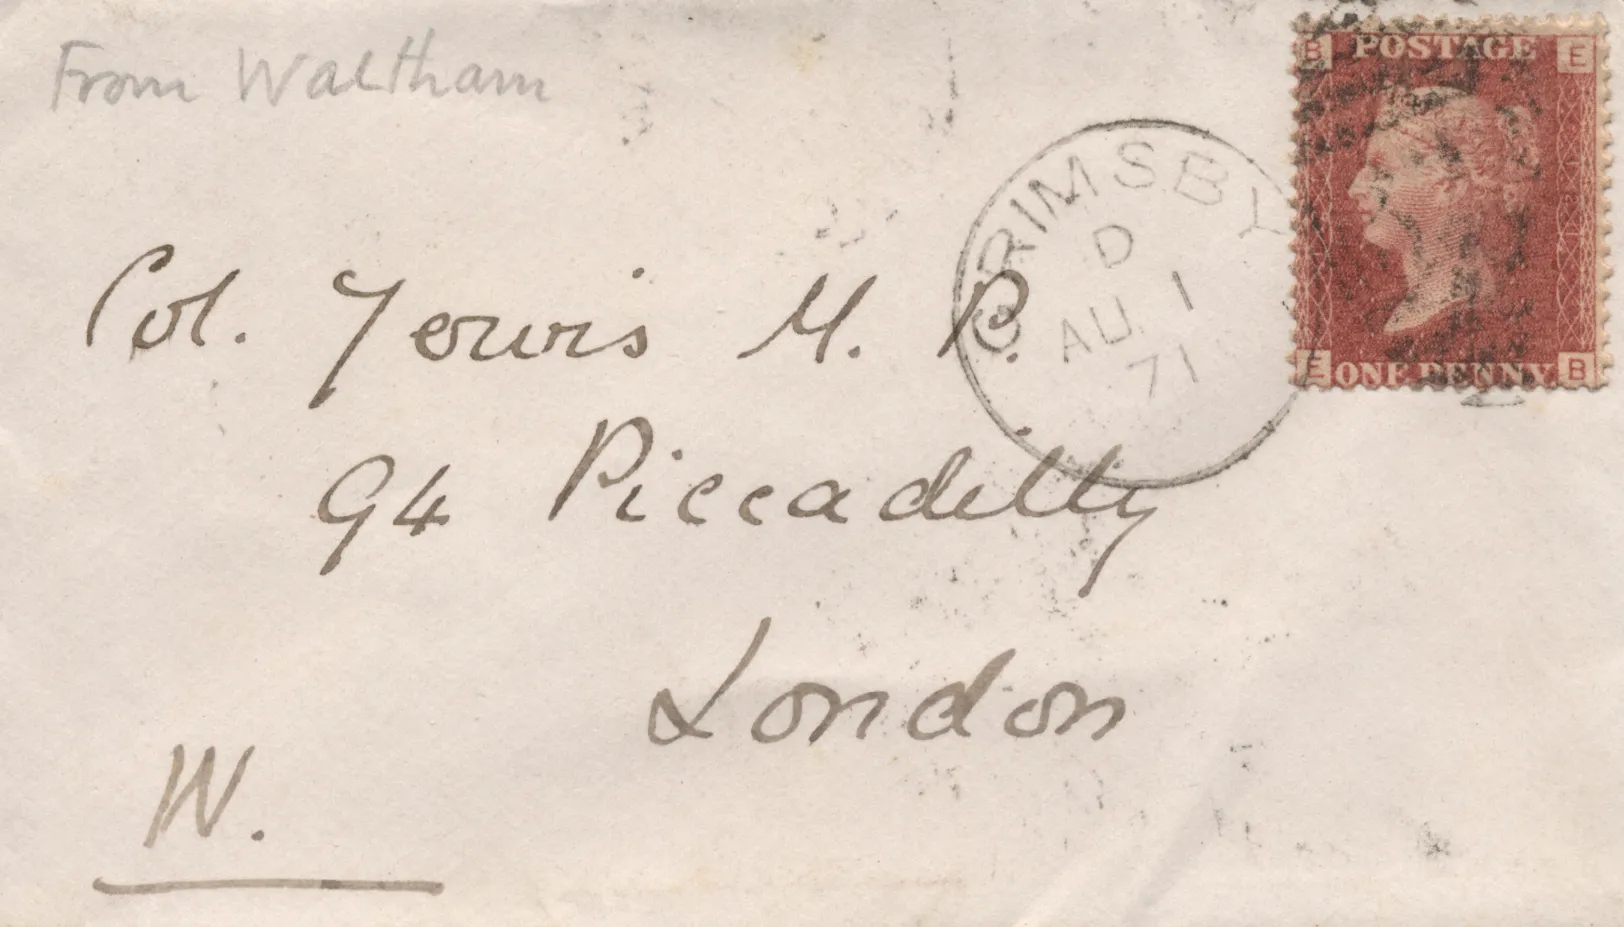 From Waltham
B POSTAGE E
GRIMSBY
D
AU 1
71
E ONE PENNY B
Col. Jervis M. P.
94 Piccadilly
London
W.